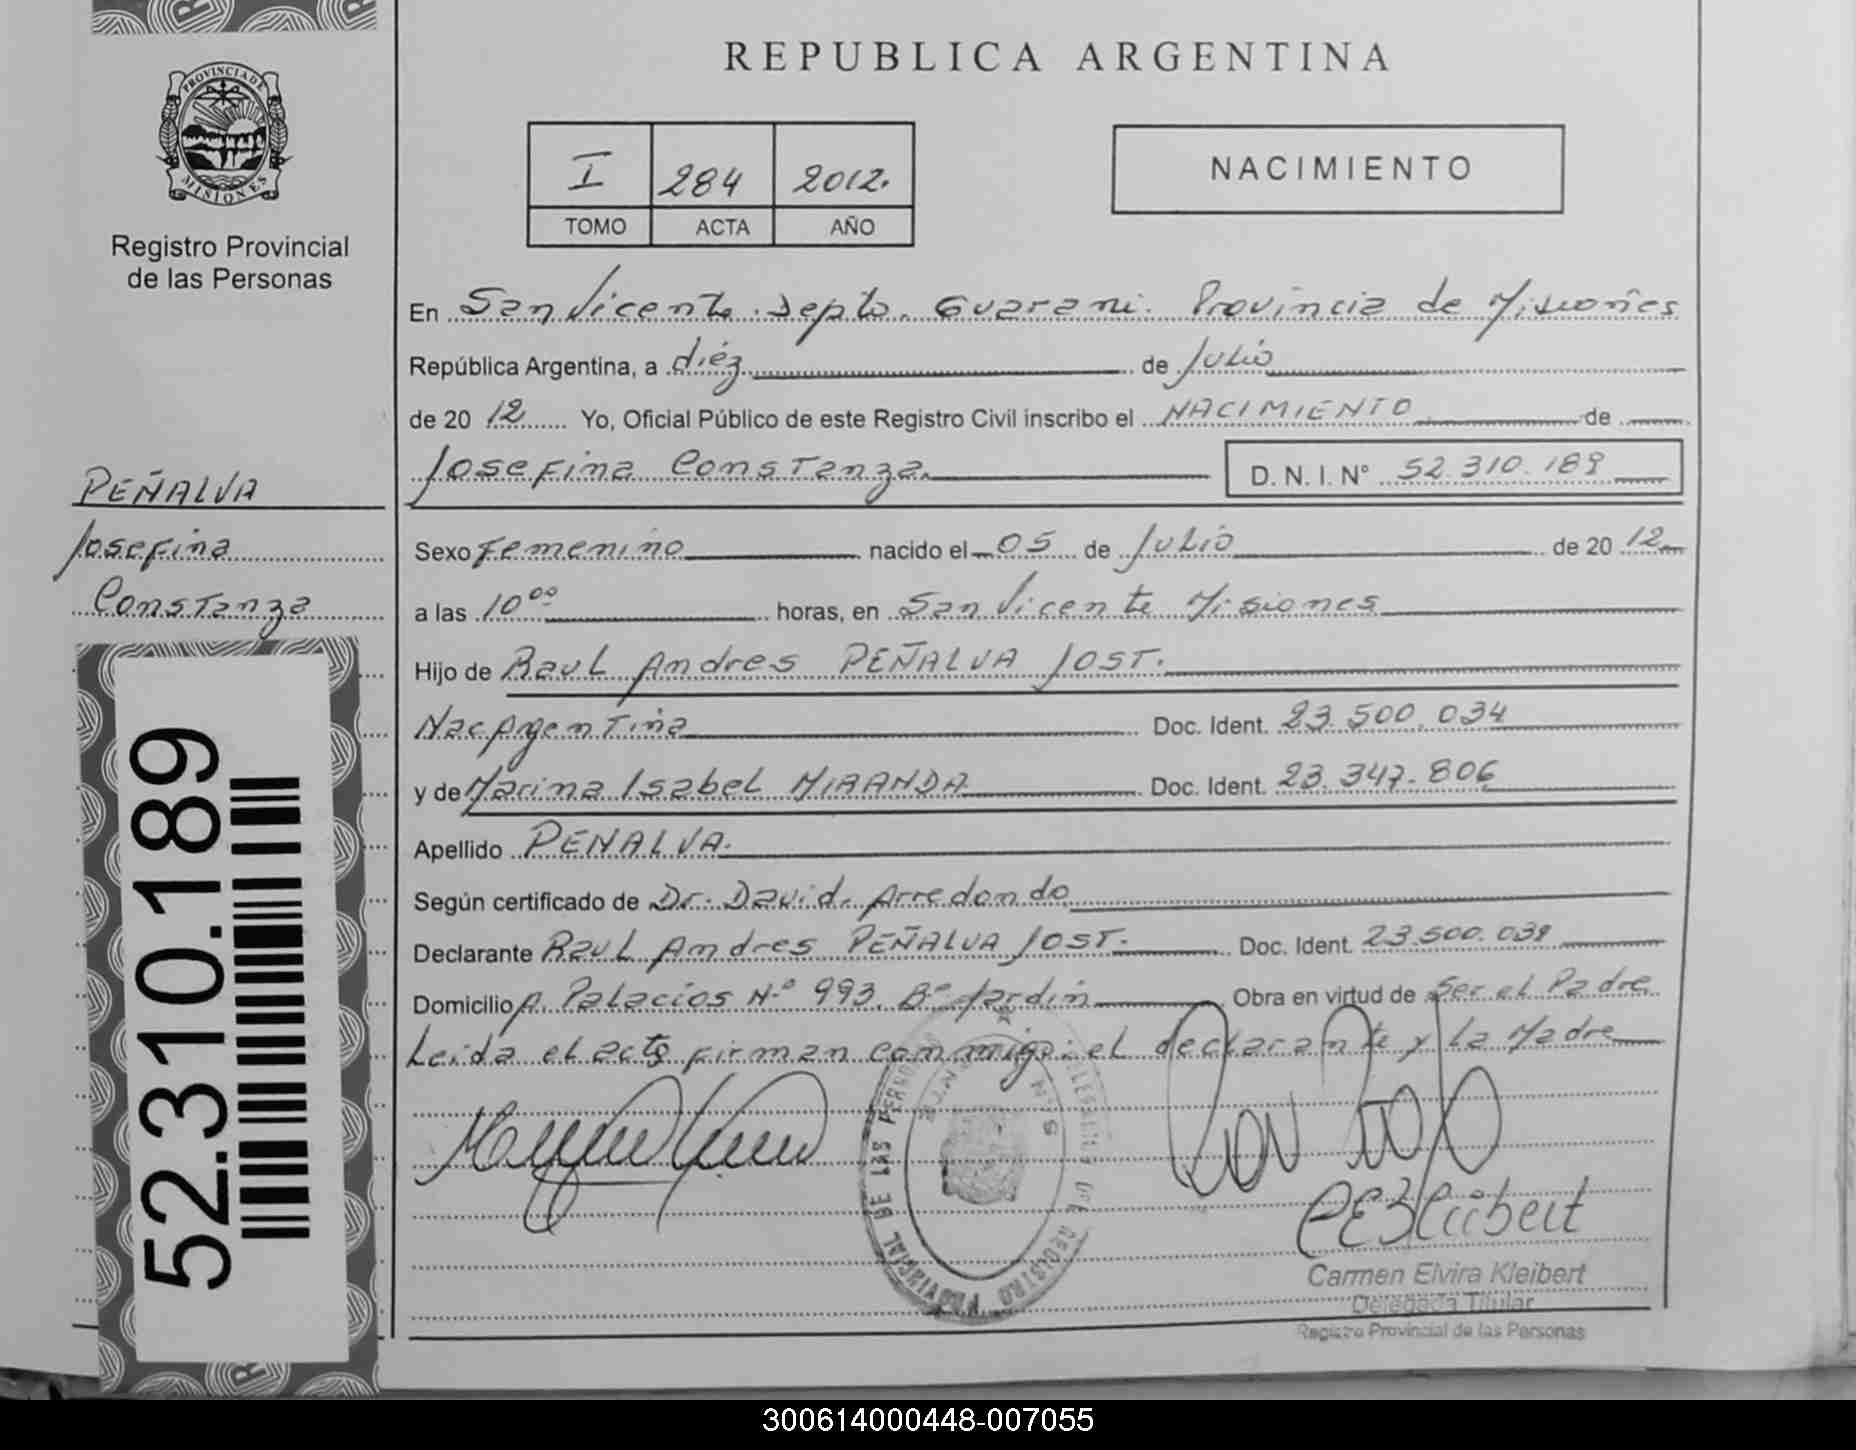 REPUBLICA ARGENTINA
PROVINCIA DE
MISIONES
Registro Provincial
de las Personas
I 284 2012.
TOMO ACTA AÑO
NACIMIENTO
En San Vicente. Depto. Guarani. Provincia de Misiones
República Argentina, a diéz de Julio
de 20 12 Yo, Oficial Público de este Registro Civil inscribo el NACIMIENTO de
Josefina Constanza. D. N. I. N° 52.310.189
PEÑALVA
Josefina
Constanza
Sexo Femenino nacido el 05 de Julio de 20 12
a las 10 00 horas, en San Vicente Misiones
Hijo de Raul Andres PEÑALVA JOST.
Nac Argentina Doc. Ident. 23.500.034
y de Marina Isabel MIRANDA Doc. Ident. 23.347.806
Apellido PENALVA.
Según certificado de Dr. David. Arredondo
Declarante Raul Andres PEÑALVA JOST. Doc. Ident. 23.500.039
Domicilio A. Palacios N.º 993. Bº Jardin Obra en virtud de Ser el Padre
Leida el acta firman conmigo: el declarante y La Madre
52.310.189
REGISTRO PROVINCIAL DE LAS PERSONAS
Carmen Elvira Kleibert
Delegada Titular
Registro Provincial de las Personas
300614000448-007055